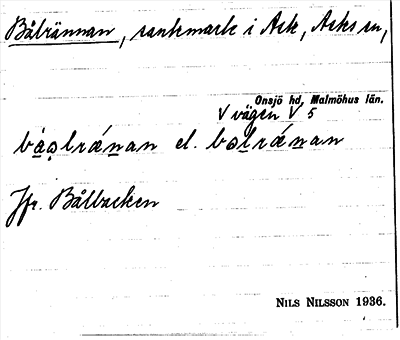 Bålrännan, sankmark i Ask, Asks sn,
Onsjö hd, Malmöhus län.
V vägen V 5
bå̱o̱lrǽṉan el. bo̱lrǽṉan
Jfr. Bålbacken
NILS NILSSON 1936.